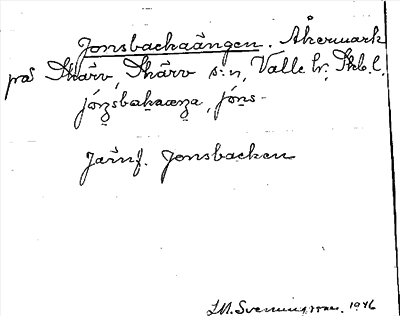 Jonsbackaängen. Åkermark
på Skärv, Skärv s:n, Valle hr, Skb. l.
jónsbakaæŋa, jóns-
Jämf. Jonsbacken
J.M. Svenningsson. 1946